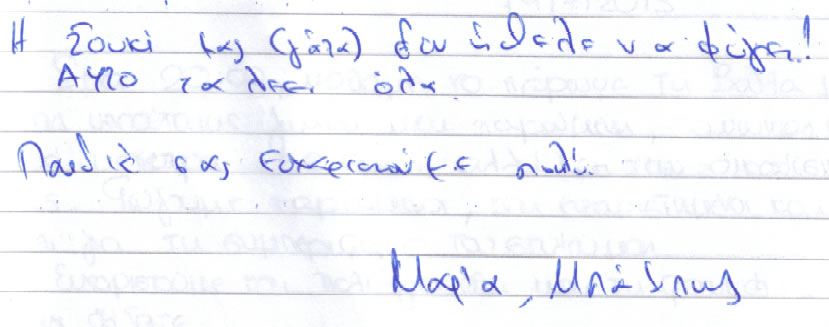 Η Σουκί μας (γάτα) δεν ήθελε να φύγει!
Αυτο τα λεει όλα.
Παιδιά σας ευχαριστούμε πολύ.
Μαρία, Μπάμπης